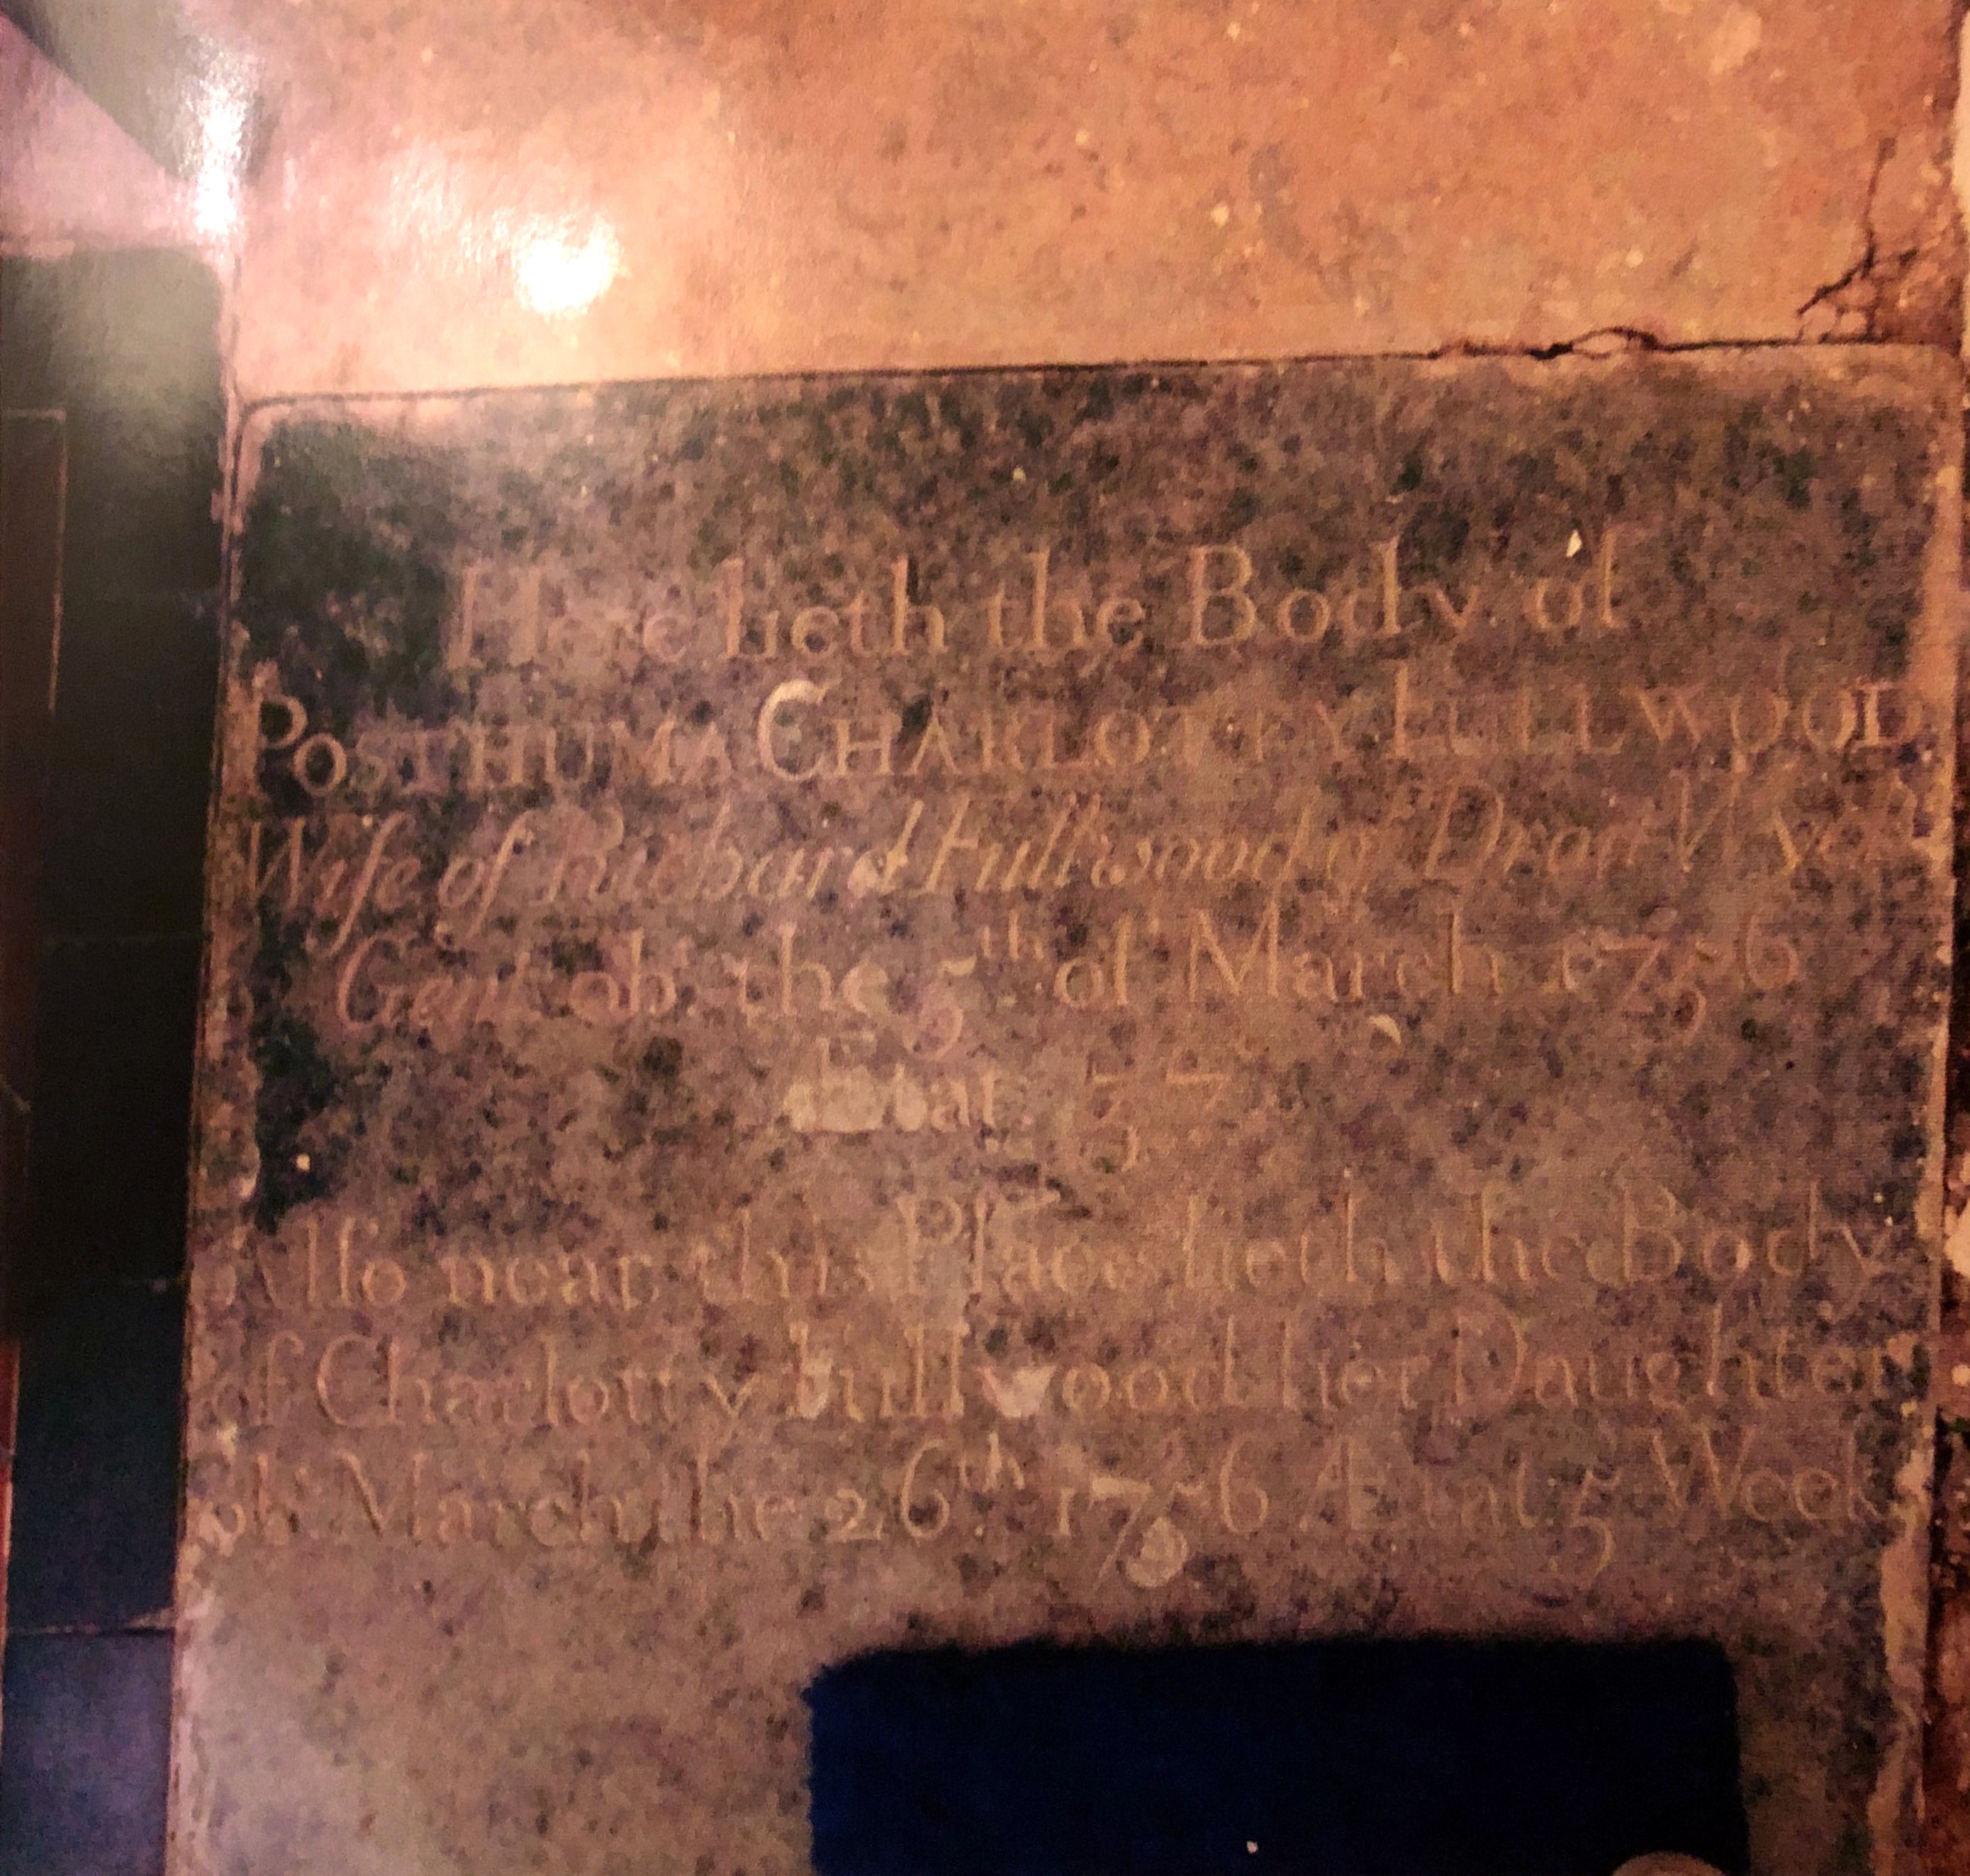 Here lieth the Body of
POSTHUMA CHARLOTTY FULLWOOD
Wife of Richard Fullwood of
Gent ob.^t the 5^th of March 1756
Ætat. 37
Allſo near this Place lieth the Body
of Charlotty Fullwood her Daughter
ob.^t March the 26^th 1756 Ætat 5 Week